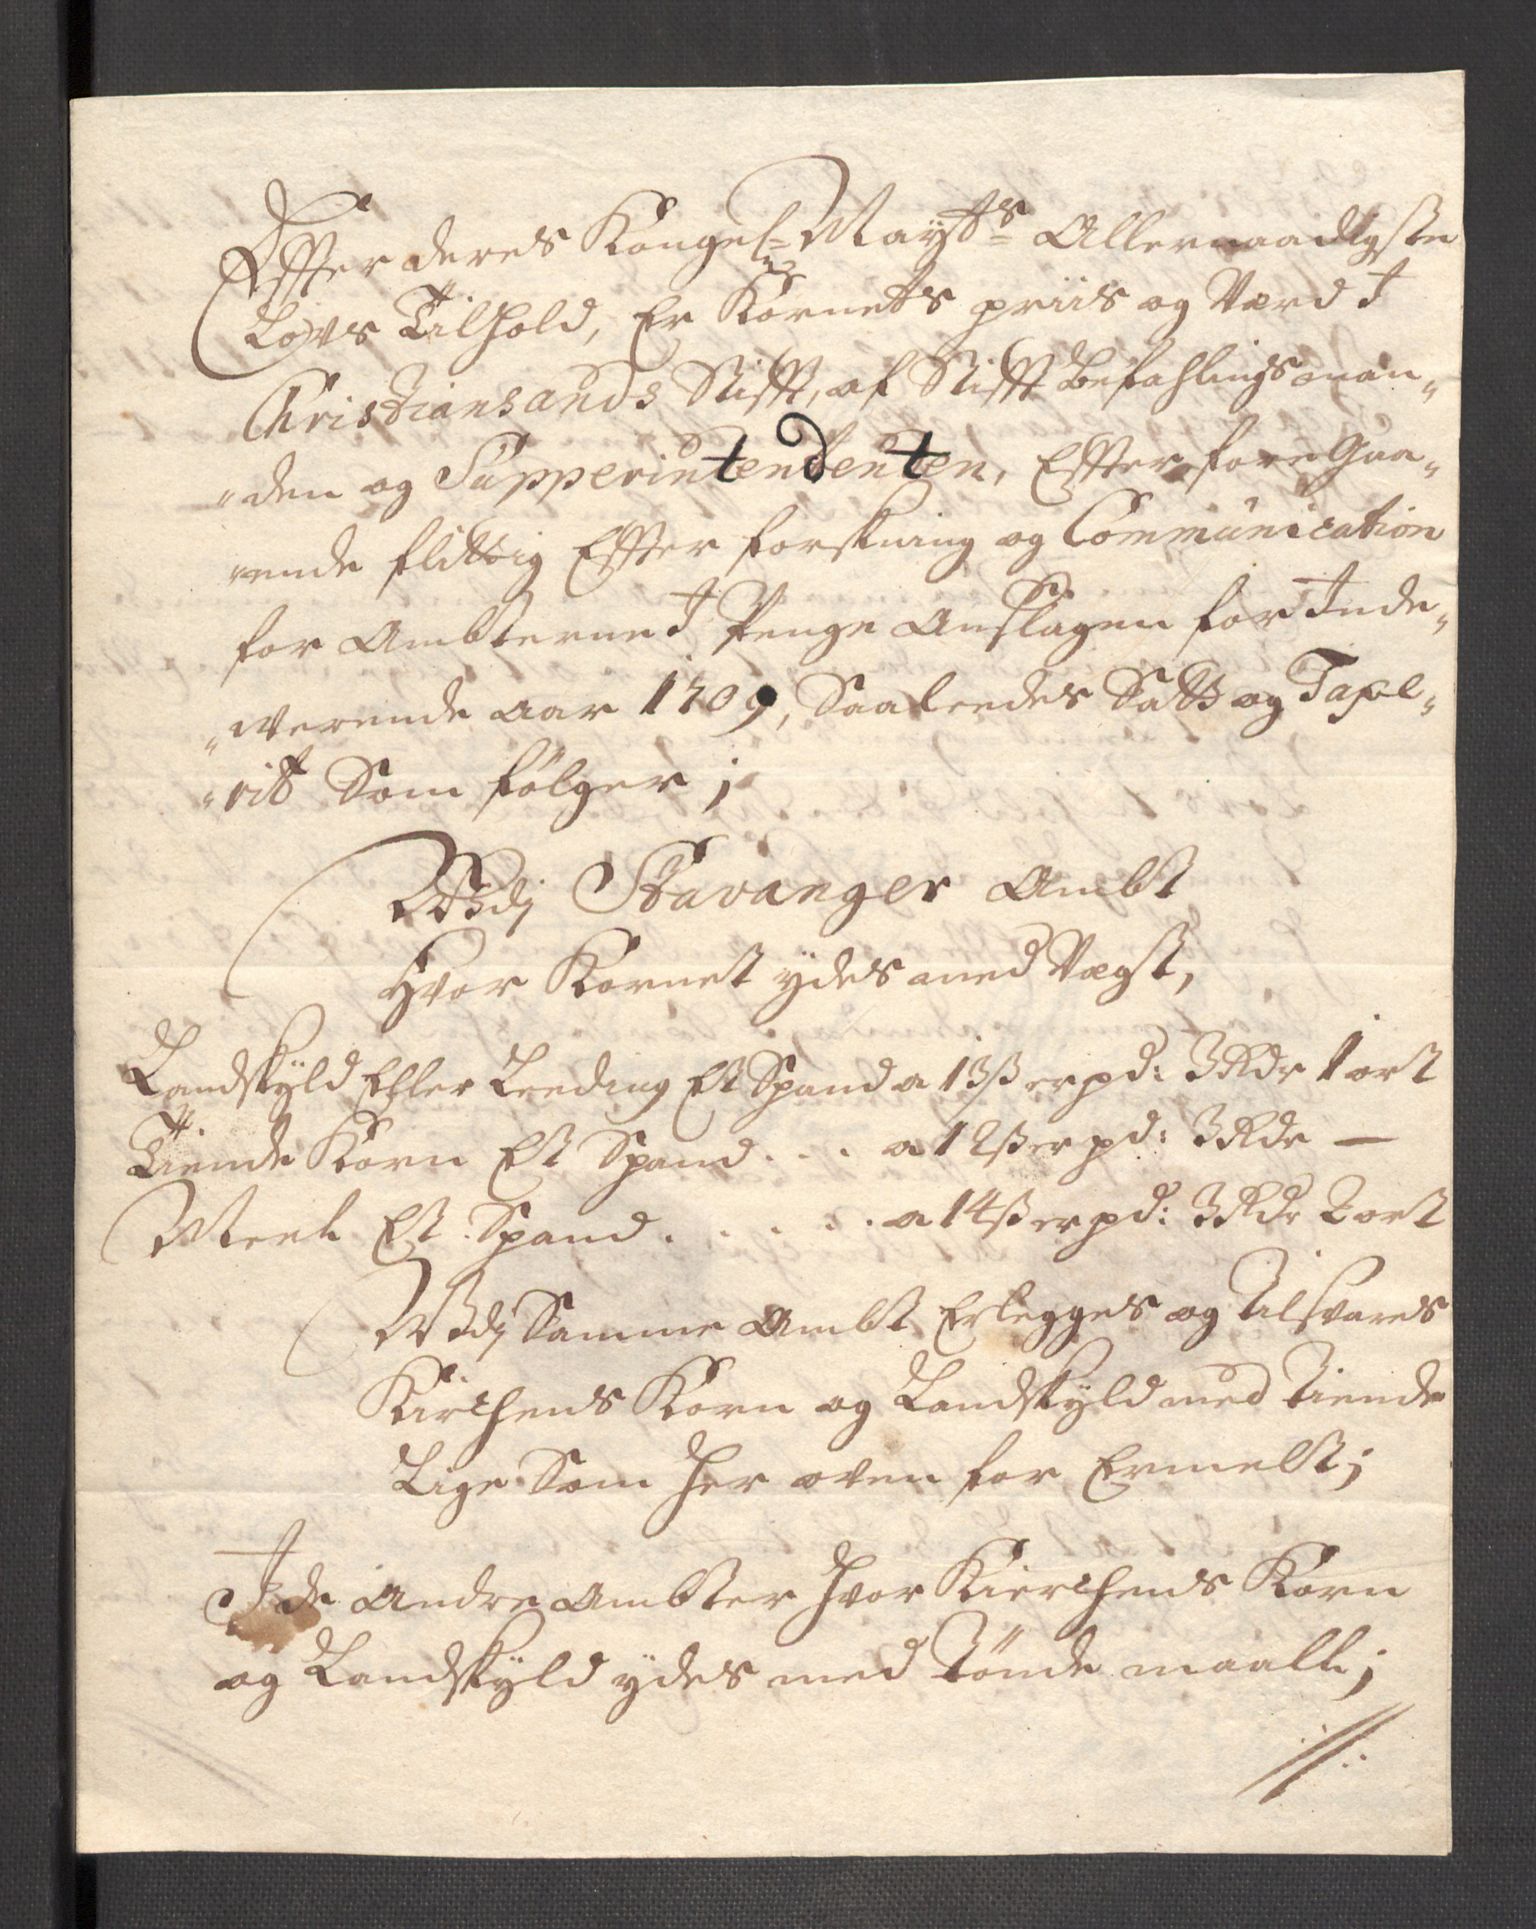 Effter deres Kongel: Mayts Allernaadigste
Lovs Tilhold, Er Kornets priis og Værd I
Christiansands Stifft, af Stifft befahlingsman„
„den og Supperintendenten, Effter foregaa„
„ende flittig Effter forskning og Communication
for Ambterne I Penge Anslagen for Inde„
„werende aar 1709, Saaledes Satt og Taxe„
„rit Som følger;
Udj Stavanger Ambt
Hvor Kornet ydes med Vægt,
Landskyld Eller Leeding Et Spand a 13ß er pd: 3 Rdr 1 ort
Tiende Korn Et Spand . . . a 12ß er pd: 3 Rdr —
Meel Et Spand . . . . . a 14ß er pd: 3 Rdr 2 ort
Udj Samme Ambt Erlegges og tilsvares
Kirchens Korn og Landskyld med tiende
Lige Som her oven for Ermelt;
I de Andre Ambter hvor Kierchens Korn
og Landskyld ydes med tönde maall;